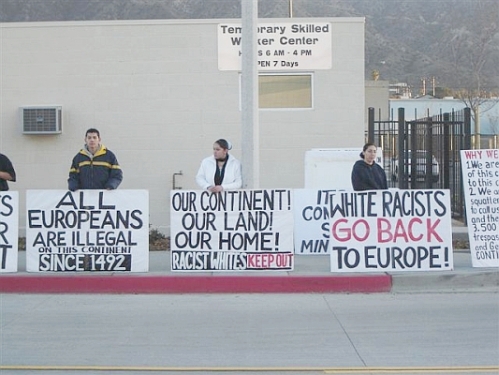 Temporary Skilled
Worker Center
6 AM - 4 PM
OPEN 7 Days
ALL
EUROPEANS
ARE ILLEGAL
ON THIS CONTINENT
SINCE 1492
OUR CONTINENT!
OUR LAND!
OUR HOME!
RACIST WHITES KEEP OUT
WHITE RACISTS
GO BACK
TO EUROPE!
WHY WE
1. We are
of this
to this
2. We
and
3. 500
and